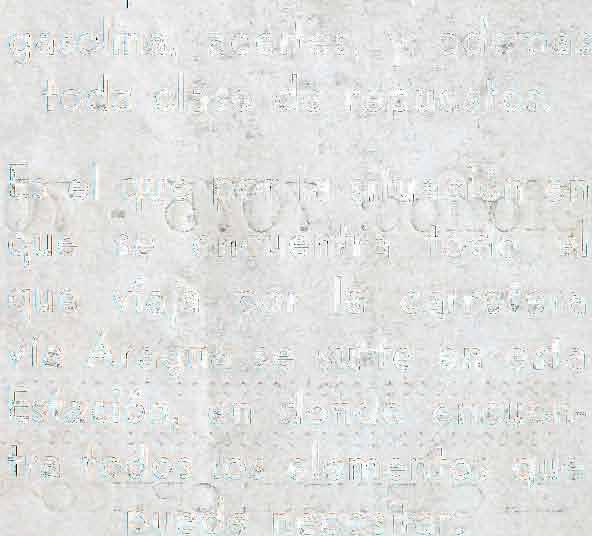 gasolina, aceites, y además
toda clase de repuestos.
Es el que por la situación en
que se encuentra todo el
que viaja por la carretera
vía Aragua se surte en esta
Estación, en donde encuen-
tra todos los elementos que
puede necesitar.